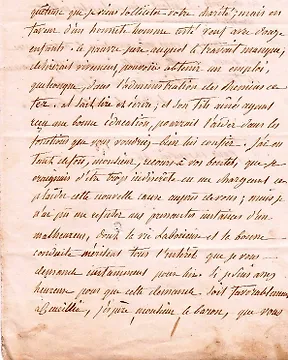 quêteuse que je viens solliciter votre charité ; mais en
faveur d'un honnête homme resté veuf avec douze
enfants. Le pauvre père auquel le travail manque,
désirerait vivement pouvoir obtenir un emploi,
quelconque, dans l'administration des chemins de
fer. il sait lire et écrire, et son fils aîné ayant
reçu une bonne éducation, pourrait l'aider dans les
fonctions que vous voudriez bien lui confier. J'ai eu
tant de fois, monsieur, recours à vos bontés, que je
craignais d'être trop indiscrète en me chargeant de
plaider cette nouvelle cause auprès de vous ; mais je
n'ai pu me refuser aux pressantes instances d'un
malheureux, dont la vie Laborieuse et la bonne
conduite méritent tout l'intérêt que je vous
demande instamment pour lui. Si je suis assez
heureuse pour que cette demande soit favorablement
accueillie, j'espère, monsieur le baron, que vous